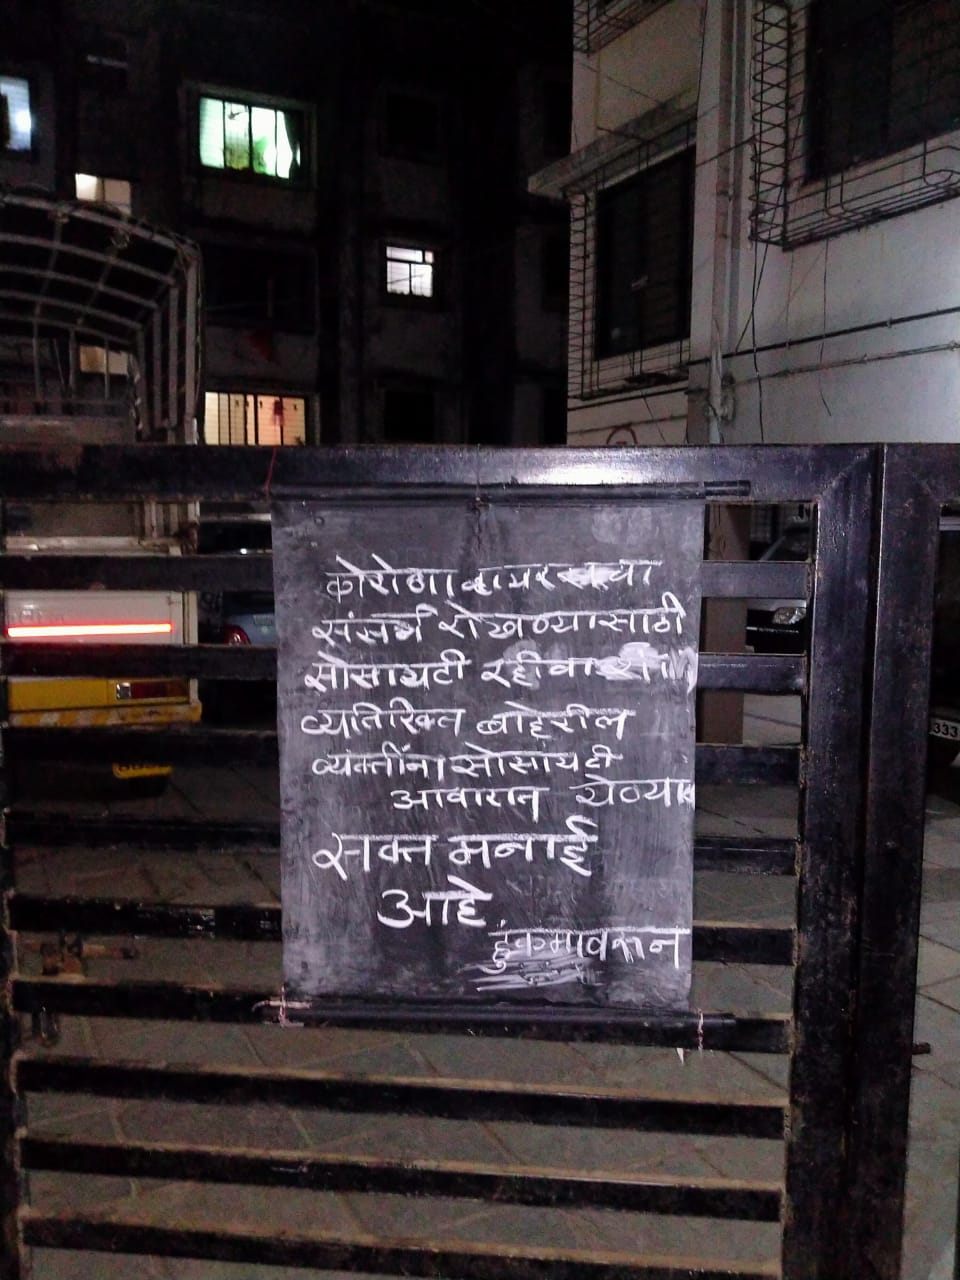 कोरोना वायरसच्या
संसर्ग रोखण्यासाठी
सोसायटी रहीवाशी
व्यतिरिक्त बाहेरील
व्यक्तींना सोसायटी
आवारात येण्यास
सक्त मनाई
आहे.
हुकमावरून
333